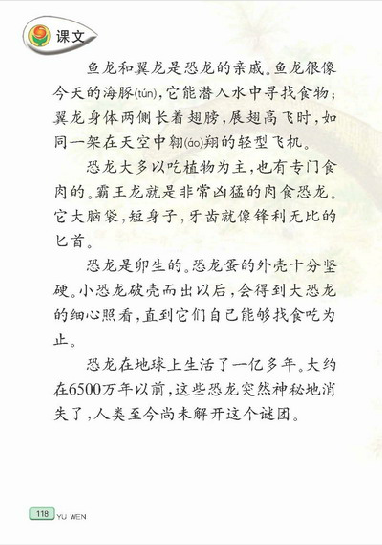 课文
鱼龙和翼龙是恐龙的亲戚。鱼龙很像
今天的海豚(tún),它能潜入水中寻找食物;
翼龙身体两侧长着翅膀,展翅高飞时,如
同一架在天空中翱(áo)翔的轻型飞机。
恐龙大多以吃植物为主,也有专门食
肉的。霸王龙就是非常凶猛的肉食恐龙。
它大脑袋,短身子,牙齿就像锋利无比的
匕首。
恐龙是卵生的。恐龙蛋的外壳十分坚
硬。小恐龙破壳而出以后,会得到大恐龙
的细心照看,直到它们自己能够找食吃为
止。
恐龙在地球上生活了一亿多年。大约
在6500万年以前,这些恐龙突然神秘地消
失了,人类至今尚未解开这个谜团。
118 YU WEN